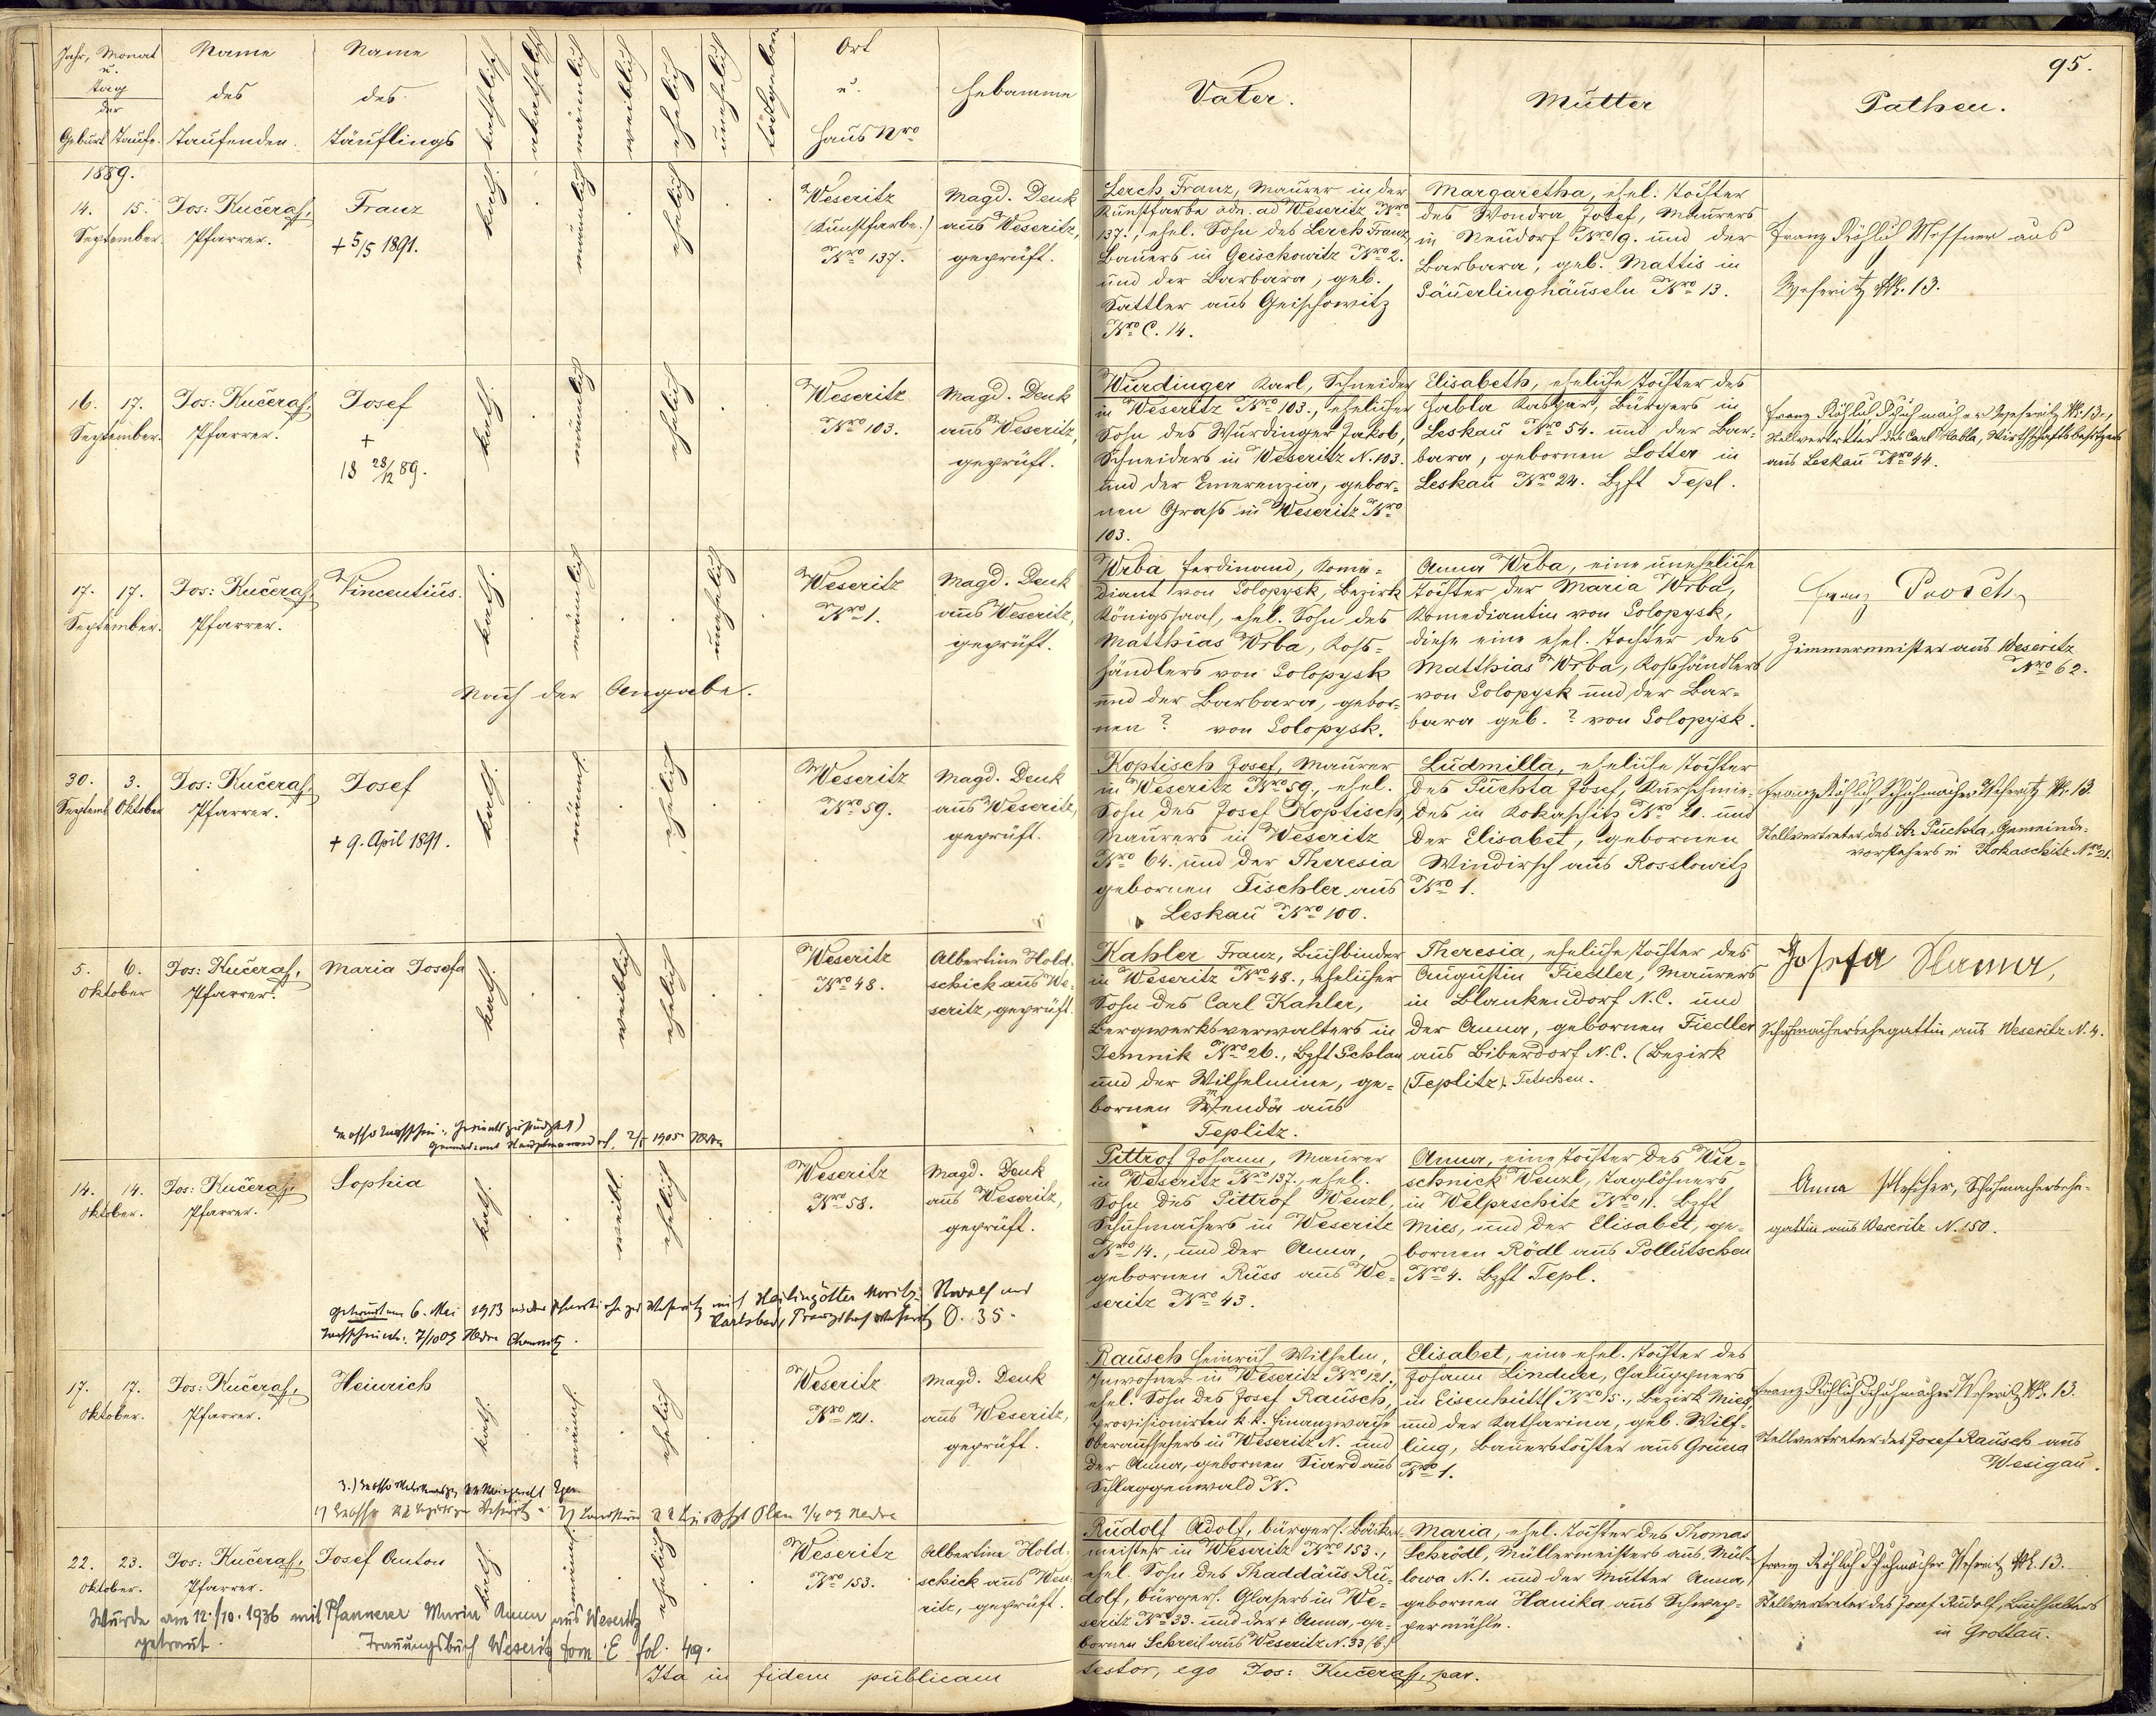 Jahr, Monat
u.
Tag
der
Geburt Taufe.
Name
des
Taufenden.
Name
des
Täuflings
katholisch
akatholisch
männlich
weiblich
ehelich
unehelich
todtgeboren
Ort
u.
Haus Nro
Hebamme
Vater.
Mutter
Pathen.
95.
1889.
14. 15.
September.
Jos: Kučera,
Pfarrer.
Franz
+ 5/5 1891.
kath.
männlich
ehelich
Weseritz
(Kunstfarbe.)
Nro 137.
Magd. Denk
aus Weseritz,
geprüft.
Lerch Franz, Maurer in der
Kunstfarbe adn. ad Weseritz Nro
137., ehel. Sohn des Lerch Franz,
Bauers in Geischowitz Nro 2.
und der Barbara, geb.
Sattler aus Geischowitz
Nro C. 14.
Margaretha, ehel. Tochter
des Wondra Josef, Maurers
in Neudorf Nro 19. und der
Barbara, geb. Mattis in
Säuerlinghäuseln Nro 13.
Franz Röhlich Meßner aus
Weseritz Nr. 13.
16. 17.
September.
Jos: Kučera,
Pfarrer.
Josef
+
18 28/12 89.
kath.
männlich
ehelich
Weseritz
Nro 103.
Magd. Denk
aus Weseritz,
geprüft.
Würdinger Karl, Schneider
in Weseritz Nro 103., ehelicher
Sohn des Würdinger Jakob,
Schneiders in Weseritz N. 103.
und der Emerenzia, gebor-
nen Graß in Weseritz Nro
103.
Elisabeth, eheliche Tochter des
Habla Kaspar, Bürgers in
Leskau Nro 54. und der Bar-
bara, gebornen Lotter in
Leskau Nro 24. Bzft Tepl.
Franz Röhlich Schuhmacher Weseritz Nr. 13.,
Stellvertreter des Carl Habla, Wirthschaftsbesitzers
aus Leskau Nro 44.
17. 17.
September.
Jos: Kučera,
Pfarrer.
Vincentius.
kath.
männlich
unehelich
Nach der Angabe.
Weseritz
Nro 1.
Magd. Denk
aus Weseritz,
geprüft.
Wrba Ferdinand, Kome-
diant von Solopysk, Bezirk
Königssaal, ehel. Sohn des
Matthias Wrba, Roß-
händlers von Solopysk
und der Barbara, gebor-
nen ? von Solopysk.
Anna Wrba, eine uneheliche
Tochter der Maria Wrba,
Komediantin von Solopysk,
diese eine ehel. Tochter des
Matthias Wrba, Roßhändlers
von Solopysk und der Bar-
bara geb. ? von Solopysk.
Franz Prosch
Zimmermeister aus Weseritz
Nro 62.
30. 3.
Septemb. Oktober
Jos: Kučera,
Pfarrer.
Josef
+ 9. April 1891.
kath.
männl.
ehelich
Weseritz
Nro 59.
Magd. Denk
aus Weseritz,
geprüft.
Koptisch Josef, Maurer
in Weseritz Nro 59., ehel.
Sohn des Josef Koptisch,
Maurers in Weseritz
Nro 64. und der Theresia
gebornen Tischler aus
Leskau Nro 100.
Ludmilla, eheliche Tochter
des Puchta Josef, Kurschmie-
des in Kokaschitz Nro 21. und
der Elisabet, gebornen
Windirsch aus Rosslowitz
Nro 1.
Franz Röhlich, Schuhmacher Weseritz Nr. 13.
Stellvertreter des Puchta, Gemeinde-
vorstehers in Kokaschitz Nro 21.
5. 6.
Oktober
Jos: Kučera,
Pfarrer.
Maria Josefa
kath.
weiblich
ehelich
Weseritz
Nro 48.
Albertine Hold-
schick aus We-
seritz, geprüft.
Kahler Franz, Buchbinder
in Weseritz Nro 48., ehelicher
Sohn des Carl Kahler,
Bergwerksverwalters in
Jemnik Nro 26., Bzft Schlan
und der Wilhelmine, ge-
bornen Wenda aus
Teplitz.
Theresia, eheliche Tochter des
Augustin Fiedler, Maurers
in Blankendorf N.C. und
der Anna, gebornen Fiedler
aus Biberdorf N.C. (Bezirk
(Teplitz). Tetschen.
Josefa Hama,
Schuhmachersehegattin aus Weseritz N. 4.
2/5 1905
14. 14.
Oktober.
Jos: Kučera,
Pfarrer.
Sophia
kath.
weibl.
ehelich
Weseritz
Nro 58.
Magd. Denk
aus Weseritz,
geprüft.
Pittrof Johann, Maurer
in Weseritz Nro 137., ehel.
Sohn des Pittrof Wenzl,
Schuhmachers in Weseritz
Nro 14., und der Anna,
gebornen Russ aus We-
seritz Nro 43.
Anna, eine Tochter des Wu-
schnick Wenzl, Taglöhners
in Welperschitz Nro 11. Bzft
Mies, und der Elisabet, ge-
bornen Rödl aus Pollutschen
Nro 4. Bzft Tepl.
Anna Fleischer, Schuhmachersehe-
gattin aus Weseritz N. 150.
Getraut am 6. Mai 1913 in der Pfarrkirche zu Weseritz mit Heilingötter Moritz Rudolf aus
Karlsbad, Trauungsbuch Weseritz D. 35.
17. 17.
Oktober.
Jos: Kučera,
Pfarrer.
Heinrich
kath.
männl.
ehelich
Weseritz
Nro 121.
Magd. Denk
aus Weseritz,
geprüft.
Rausch Heinrich Wilhelm,
Inwohner in Weseritz Nro 121.,
ehel. Sohn des Josef Rausch,
provisionirten k.k. Finanzwach-
Oberaufsehers in Weseritz N. und
der Anna, gebornen Siard aus
Schlaggenwald N.
Elisabet, eine ehel. Tochter des
Johann Lindner, Chaluppners
in Eisenhüttl Nro 15., Bezirk Mies,
und der Katharina, geb. Wilf-
ling, Bauerstochter aus Gruna
Nro 1.
Franz Röhlich Schuhmacher Weseritz Nr. 13.
Stellvertreter des Josef Rausch aus
Wesigau.
22. 23.
Oktober.
Jos: Kučera,
Pfarrer.
Josef Anton
kath.
männl.
ehelich
Weseritz
Nro 153.
Albertine Hold-
schick aus Wese-
ritz, geprüft.
Rudolf Adolf, bürgerl. Bäcker-
meister in Weseritz Nro 153.,
ehel. Sohn des Thaddäus Ru-
dolf, bürgerl. Glasers in We-
seritz Nro 33. und der + Anna, ge-
bornen Schreil aus Weseritz N. 33/6.
Maria, ehel. Tochter des Thomas
Schrödl, Müllermeisters aus Mül-
lowa N. 1. und der Mutter Anna,
gebornen Hanika aus Schwep-
permühle.
Franz Röhlich Schuhmacher Weseritz Nr. 13.
Stellvertreter des Josef Rudolf, Buchhalters
in Grottau.
Wurde am 12./10. 1936 mit Pfannerer Maria Anna aus Weseritz
getraut. Trauungsbuch Weseritz tom E fol. 49.
Ita in fidem publicam testor, ego Jos: Kučera, par.